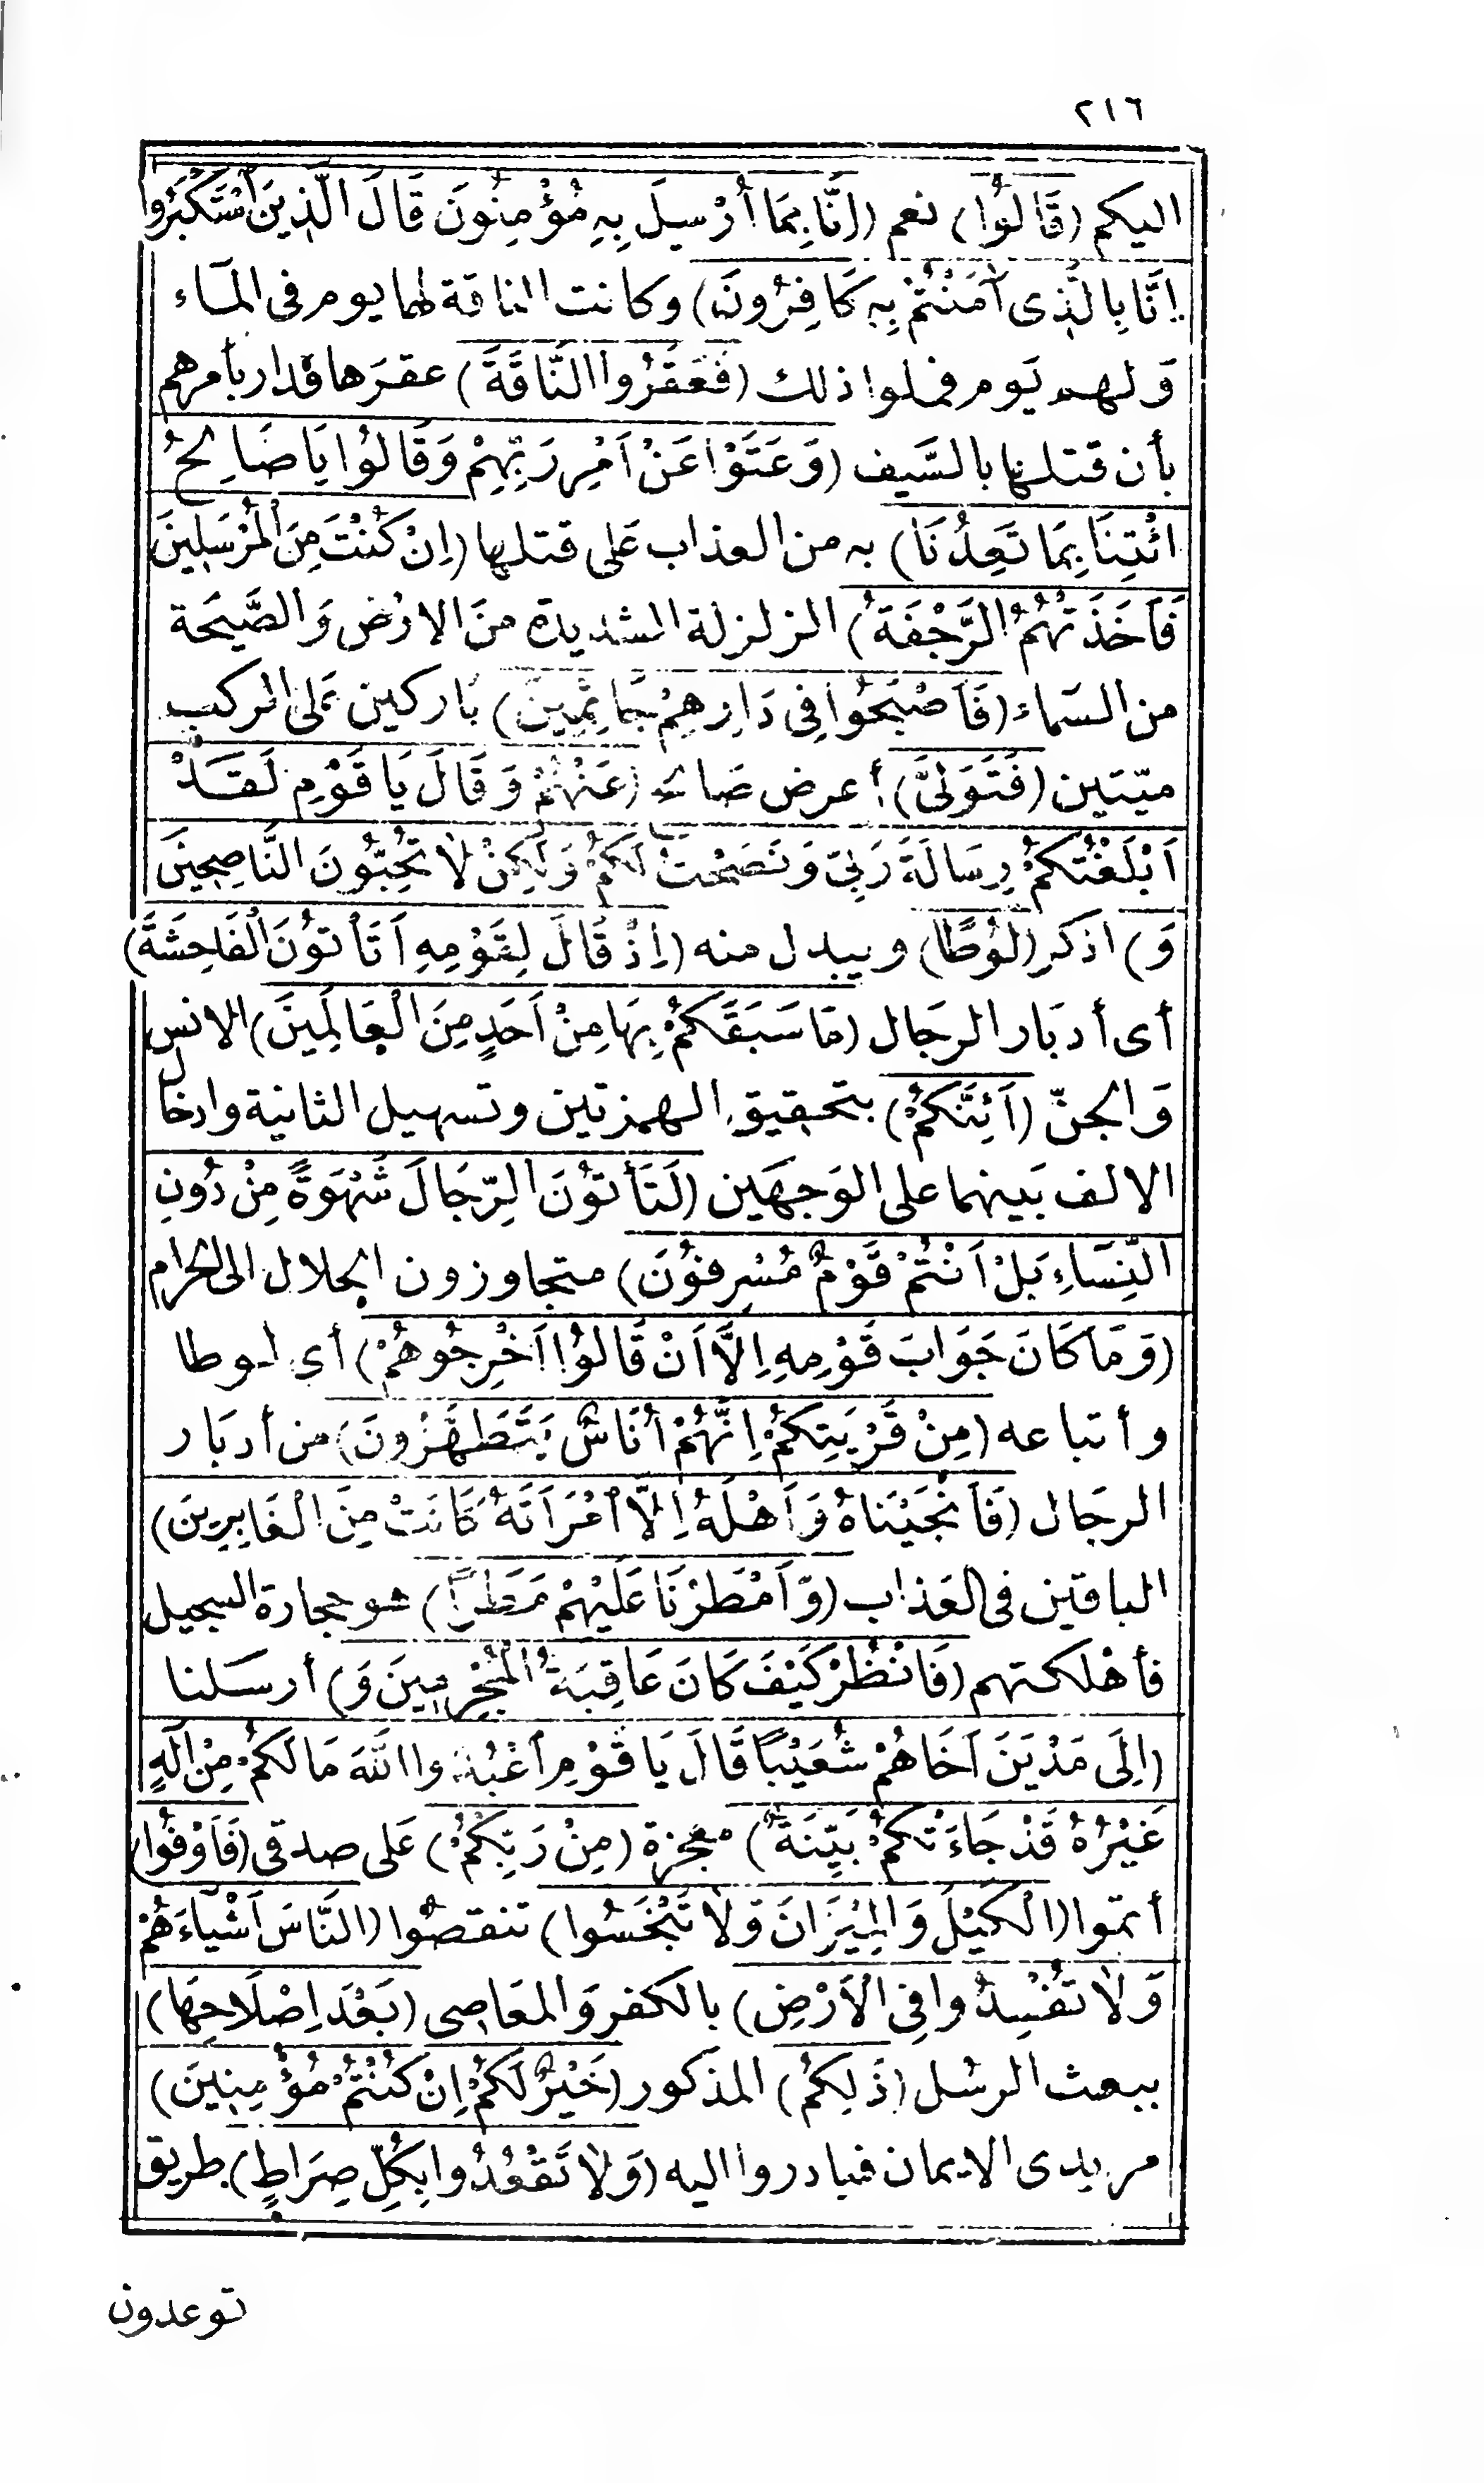 ٢١٦
اليكم (قَالُوا) نعم (اِنَّا بِمَا أُرْسِلَ بِهِ مُؤْمِنُونَ قَالَ الَّذِينَ اسْتَكْبَرُوا
اِنَّا بِالَّذِى آمَنْتُمْ بِهِ كَافِرُونَ) وكانت الناقة لها يوم فى المآء
وَلهم يَوم فملوا ذلك (فَعَقَرُوا النَّاقَةَ) عقرَها قدار بأمرهم
بأن قتلها بالسَّيف (وَعَتَوْا عَنْ اَمْرِ رَبِّهِمْ وَقَالُوا يَا صَالِحُ
ائْتِنَا بِمَا تَعِدُنَا) به من العذاب عَلى قتلها (اِنْ كُنْتَ مِنَ الْمُرْسَلِينَ
فَاَخَذَتْهُمُ الرَّجْفَةُ) الزلزلة الشديدة منَ الارْض وَالصَّيحَة
من السَماء (فَاَصْبَحُوا فِى دَارِهِمْ جَاثِمِينَ) بَاركين عَلى الركب
ميّتَين (فَتَوَلَّى) أعرض صَالح (عَنْهُمْ وَقَالَ يَا قَوْمِ لَقَدْ
اَبْلَغْتُكُمْ رِسَالَةَ رَبِّى وَنَصَحْتُ لَكُمْ وَلَكِنْ لَا تُحِبُّونَ النَّاصِحِينَ
وَ) اذكر (لُوطًا) ويبدل منه (اِذْ قَالَ لِقَوْمِهِ اَتَأْتُونَ الْفَاحِشَةَ)
أى أدبَار الرجَال (مَا سَبَقَكُمْ بِهَا مِنْ اَحَدٍ مِنَ الْعَالَمِينَ) الانس
وَالجنّ (اَئِنَّكُمْ) بتحقيق الهمزتين وتسهيل الثانية وادخال
الالف بَينهما على الوَجهَين (لَتَأْتُونَ الرِّجَالَ شَهْوَةً مِنْ دُونِ
النِّسَآءِ بَلْ اَنْتُمْ قَوْمٌ مُسْرِفُونَ) متجاوزون الحلال الى الحرام
(وَمَا كَانَ جَوَابَ قَوْمِهِ اِلَّا اَنْ قَالُوا اَخْرِجُوهُمْ) أى لوطا
وأتباعه (مِنْ قَرْيَتِكُمْ اِنَّهُمْ اُنَاسٌ يَتَطَهَّرُونَ) من أدبَار
الرجَال (فَاَنْجَيْنَاهُ وَاَهْلَهُ اِلَّا امْرَاَتَهُ كَانَتْ مِنَ الْغَابِرِينَ)
الباقين فى العَذاب (وَاَمْطَرْنَا عَلَيْهِمْ مَطَرًا) هو حجارة السجيل
فأهْلكتهم (فَانْظُرْ كَيْفَ كَانَ عَاقِبَةُ الْمُجْرِمِينَ وَ) أرسَلنا
(اِلَى مَدْيَنَ اَخَاهُمْ شُعَيْبًا قَالَ يَا قَوْمِ اعْبُدُوا اللهَ مَا لَكُمْ مِنْ اِلَهٍ
غَيْرُهُ قَدْ جَاءَتْكُمْ بَيِّنَةٌ) معجزة (مِنْ رَبِّكُمْ) عَلى صدقى (فَاَوْفُوا)
أتموا (الْكَيْلَ وَالْمِيزَانَ وَلَا تَبْخَسُوا) تنقصُوا (النَّاسَ اَشْيَآءَهُمْ
وَلَا تُفْسِدُوا فِى الْاَرْضِ) بالكفر وَالمعَاصى (بَعْدَ اِصْلَاحِهَا)
ببعث الرسُل (ذَلِكُمْ) المذكور (خَيْرٌ لَكُمْ اِنْ كُنْتُمْ مُؤْمِنِينَ)
مريدى الايمان فبادروا اليه (وَلَا تَقْعُدُوا بِكُلِّ صِرَاطٍ) طريق
توعدون